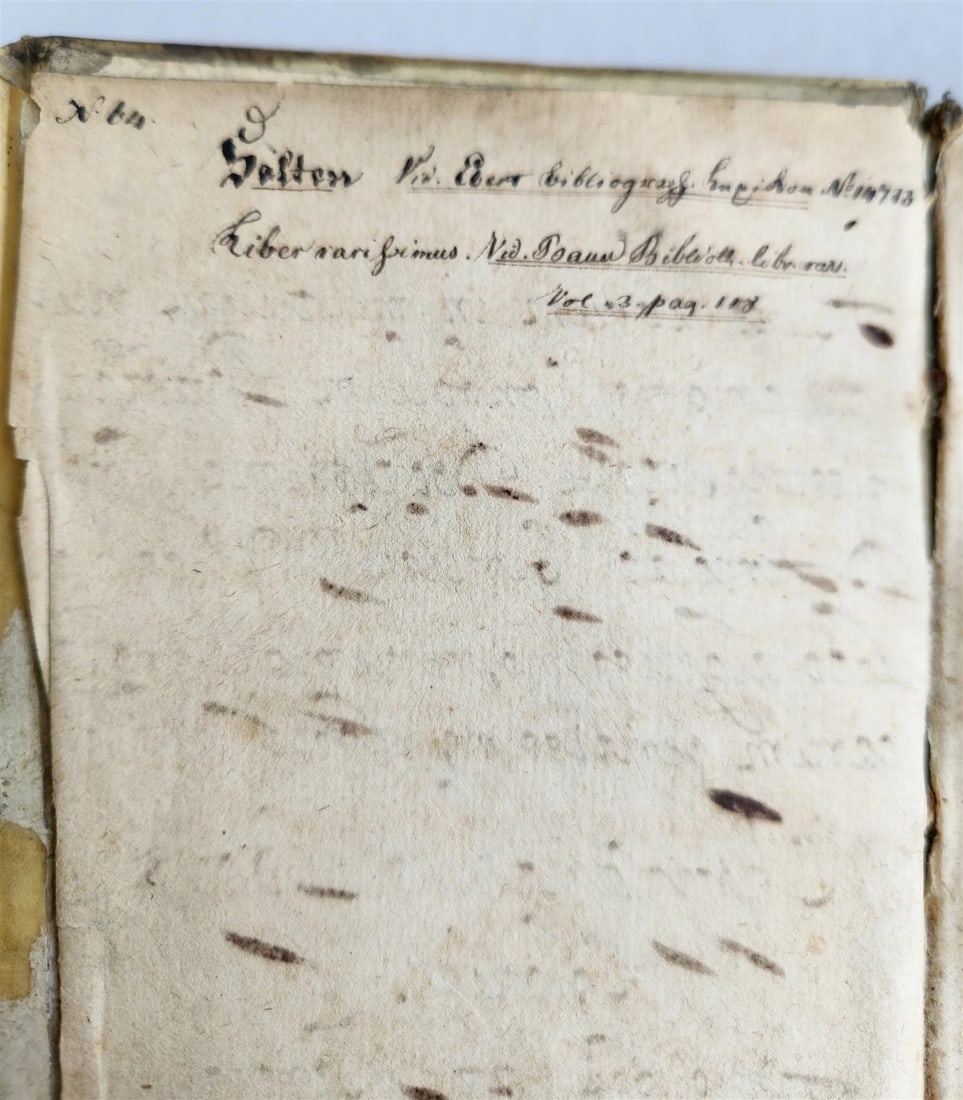 N. 64.
Selten Vid. Ebert bibliograph. Lexikon No 14713
Liber rarissimus. Vid. Bauer Biblioth. libr. rar.
Vol. 3. pag. 118